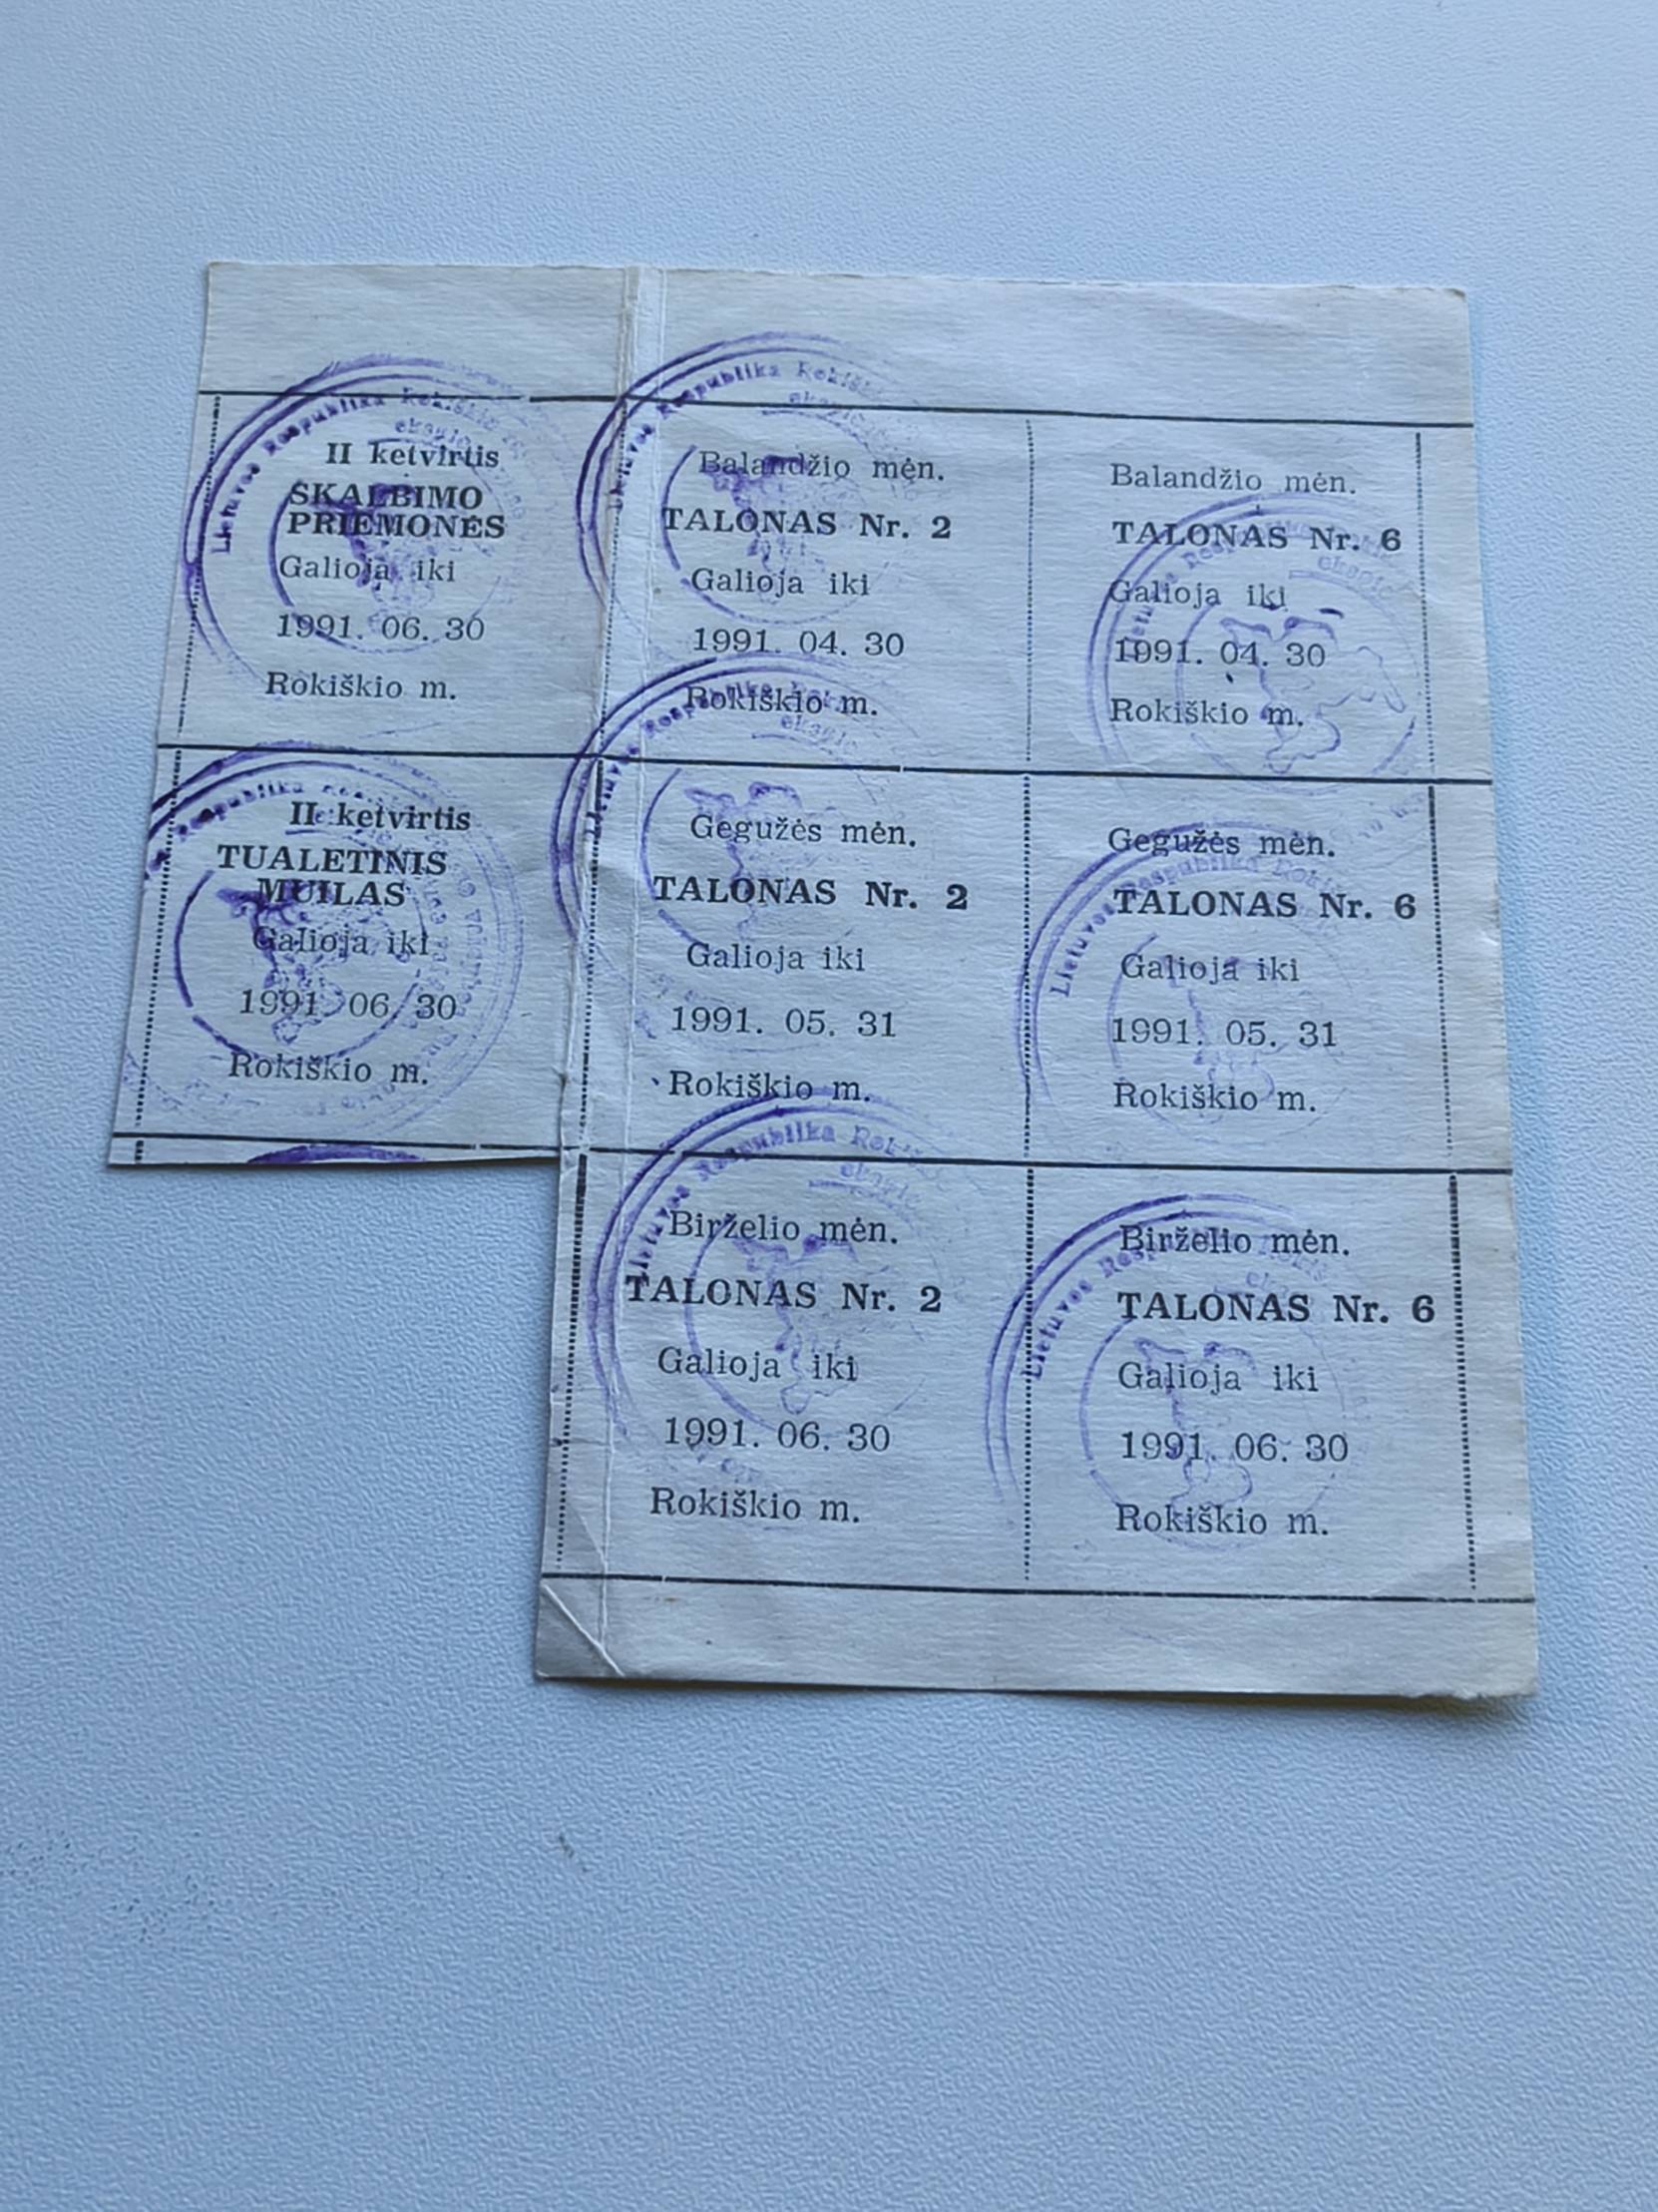 II ketvirtis
SKALBIMO
PRIEMONĖS
Galioja iki
1991. 06. 30
Rokiškio m.
Balandžio mėn.
TALONAS Nr. 2
Galioja iki
1991. 04. 30
Rokiškio m.
Balandžio mėn.
TALONAS Nr. 6
Galioja iki
1991. 04. 30
Rokiškio m.
II ketvirtis
TUALETINIS
MUILAS
Galioja iki
1991. 06. 30
Rokiškio m.
Gegužės mėn.
TALONAS Nr. 2
Galioja iki
1991. 05. 31
Rokiškio m.
Gegužės mėn.
TALONAS Nr. 6
Galioja iki
1991. 05. 31
Rokiškio m.
Birželio mėn.
TALONAS Nr. 2
Galioja iki
1991. 06. 30
Rokiškio m.
Birželio mėn.
TALONAS Nr. 6
Galioja iki
1991. 06. 30
Rokiškio m.
Lietuvos Respublika
Lietuvos Respublika
Respublika
Lietuvos Respublika
Lietuvos Respublika
Lietuvos Respublika
Lietuvos